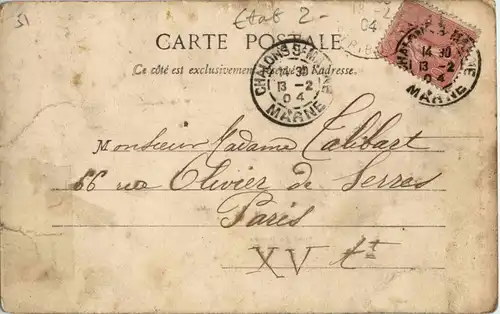 51
Etat 2-
CARTE POSTALE
Ce côté est exclusivement réservé à l'adresse.
CHALONS-S-MARNE
14 30
13 - 2
04
MARNE
CHALONS-S-MARNE
14 30
13 - 2
04
MARNE
04
Monsieur Madame Calibart
66 rue Olivier de Serres
Paris
XV et